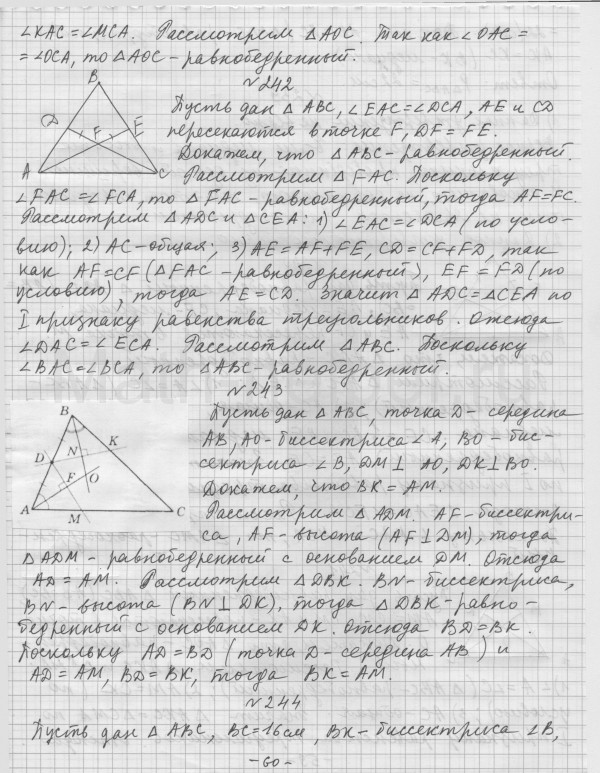 ∠KAC = ∠MCA. Рассмотрим △AOC. Так как ∠OAC =
= ∠OCA, то △AOC – равнобедренный.
№242
B
D
F
E
A
C
Пусть дан △ABC, ∠EAC = ∠DCA, AE и CD
пересекаются в точке F, DF = FE.
Докажем, что △ABC – равнобедренный.
Рассмотрим △FAC. Поскольку
∠FAC = ∠FCA, то △FAC – равнобедренный, тогда AF = FC.
Рассмотрим △ADC и △CEA: 1) ∠EAC = ∠DCA (по усло-
вию); 2) AC – общая; 3) AE = AF + FE, CD = CF + FD, так
как AF = CF (△FAC – равнобедренный), EF = FD (по
условию), тогда AE = CD. Значит △ADC = △CEA по
I признаку равенства треугольников. Отсюда
∠DAC = ∠ECA. Рассмотрим △ABC. Поскольку
∠BAC = ∠BCA, то △ABC – равнобедренный.
№243
B
N
K
D
F
O
A
M
C
Пусть дан △ABC, точка D – середина
AB, AO – биссектриса ∠A, BO – бис-
сектриса ∠B, DM ⊥ AO, DK ⊥ BO.
Докажем, что BK = AM.
Рассмотрим △ADM. AF – биссектри-
са, AF – высота (AF ⊥ DM), тогда
△ADM – равнобедренный с основанием DM. Отсюда
AD = AM. Рассмотрим △DBK. BN – биссектриса,
BN – высота (BN ⊥ DK), тогда △DBK – равно-
бедренный с основанием DK. Отсюда BD = BK.
Поскольку AD = BD (точка D – середина AB) и
AD = AM, BD = BK, тогда BK = AM.
№244
Пусть дан △ABC, BC = 16см, BK – биссектриса ∠B,
– 60 –